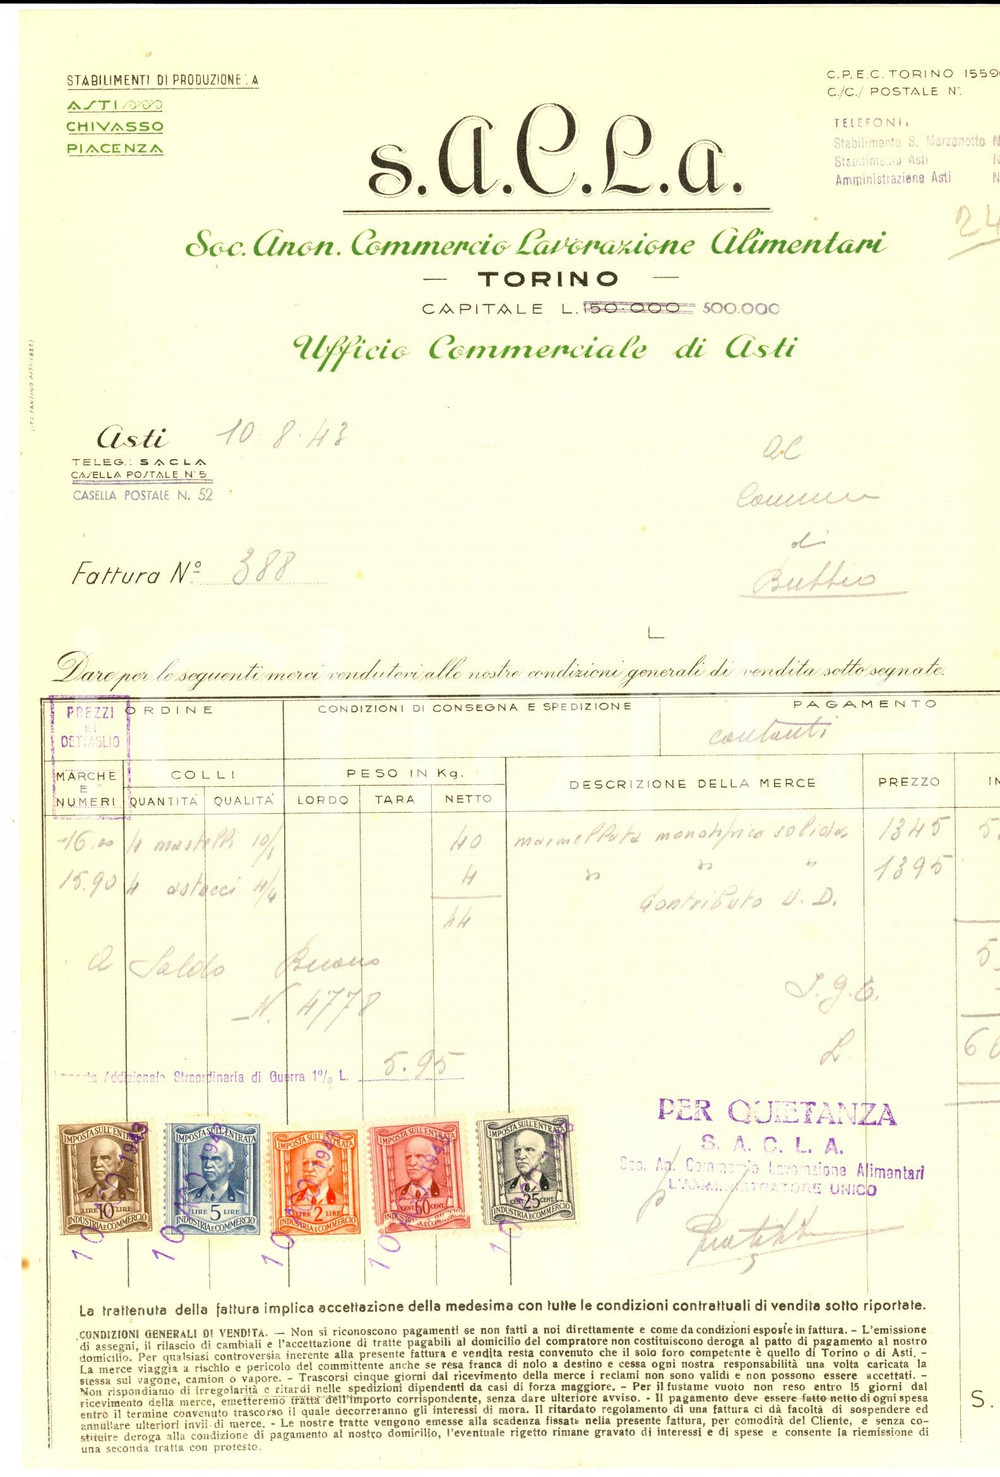 STABILIMENTI DI PRODUZIONE: A
ASTI
CHIVASSO
PIACENZA
C.P.E.C. TORINO 1559
C/C/ POSTALE N.
TELEFONI:
Stabilimento S. Marzanotto N
Stabilimento Asti N
Amministrazione Asti N
24
S.A.C.L.A.
Soc. Anon. Commercio Lavorazione Alimentari
— TORINO —
CAPITALE L. 150.000 500.000
Ufficio Commerciale di Asti
Asti 10.8.43
TELEG.: SACLA
CASELLA POSTALE N° 5
CASELLA POSTALE N. 52
al
Comune
di
Buttrio
Fattura N° 388
Dare per le seguenti merci vendutevi alle nostre condizioni generali di vendita sotto segnate.
PREZZI AL DETTAGLIO
ORDINE
CONDIZIONI DI CONSEGNA E SPEDIZIONE
PAGAMENTO
contanti
MARCHE E NUMERI
COLLI
PESO IN Kg.
DESCRIZIONE DELLA MERCE
PREZZO
IN
QUANTITÀ QUALITÀ LORDO TARA NETTO
16.00 4 mastelli 10/1 40 marmellata monotipica solida 1345 5.
15.90 4 astucci 4/4 4 " " " 1395
44 Contributo U.D.
A Saldo Buono 5
N. 4778 I.g.E.
L. 60
Imposta Addizionale Straordinaria di Guerra 1% L. 5.95
PER QUIETANZA
S. A. C. L. A.
Soc. An. Commercio Lavorazione Alimentari
L'AMMINISTRATORE UNICO
IMPOSTA SULL'ENTRATA
LIRE 10 LIRE
INDUSTRIA E COMMERCIO
IMPOSTA SULL'ENTRATA
LIRE 5 LIRE
INDUSTRIA E COMMERCIO
IMPOSTA SULL'ENTRATA
LIRE 2 LIRE
INDUSTRIA E COMMERCIO
IMPOSTA SULL'ENTRATA
CENT 60 CENT
INDUSTRIA E COMMERCIO
IMPOSTA SULL'ENTRATA
CENT 25 CENT
INDUSTRIA E COMMERCIO
La trattenuta della fattura implica accettazione della medesima con tutte le condizioni contrattuali di vendita sotto riportate.
CONDIZIONI GENERALI DI VENDITA. — Non si riconoscono pagamenti se non fatti a noi direttamente e come da condizioni esposte in fattura. - L'emissione
di assegni, il rilascio di cambiali e l'accettazione di tratte pagabili al domicilio del compratore non costituiscono deroga al patto di pagamento al nostro
domicilio. Per qualsiasi controversia inerente alla presente fattura e vendita resta convenuto che il solo foro competente è quello di Torino o di Asti. -
La merce viaggia a rischio e pericolo del committente anche se resa franca di nolo a destino e cessa ogni nostra responsabilità una volta caricata la
stessa sul vagone, camion o vapore. - Trascorsi cinque giorni dal ricevimento della merce i reclami non sono validi e non possono essere accettati. -
Non rispondiamo di irregolarità e ritardi nelle spedizioni dipendenti da casi di forza maggiore. - Per il fustame vuoto non reso entro 15 giorni dal
ricevimento della merce, emetteremo tratta dell'importo corrispondente, senza dare ulteriore avviso. - Il pagamento deve essere fatto netto di ogni spesa
entro il termine convenuto trascorso il quale decorreranno gli interessi di mora. Il ritardato regolamento di una fattura ci dà facoltà di sospendere ed
annullare ulteriori invii di merce. - Le nostre tratte vengono emesse alla scadenza fissata nella presente fattura, per comodità del Cliente, e senza co-
stituire deroga alla condizione di pagamento al nostro domicilio, l'eventuale rigetto rimane gravato di interessi e di spese e consente la riemissione di
una seconda tratta con protesto.
S.